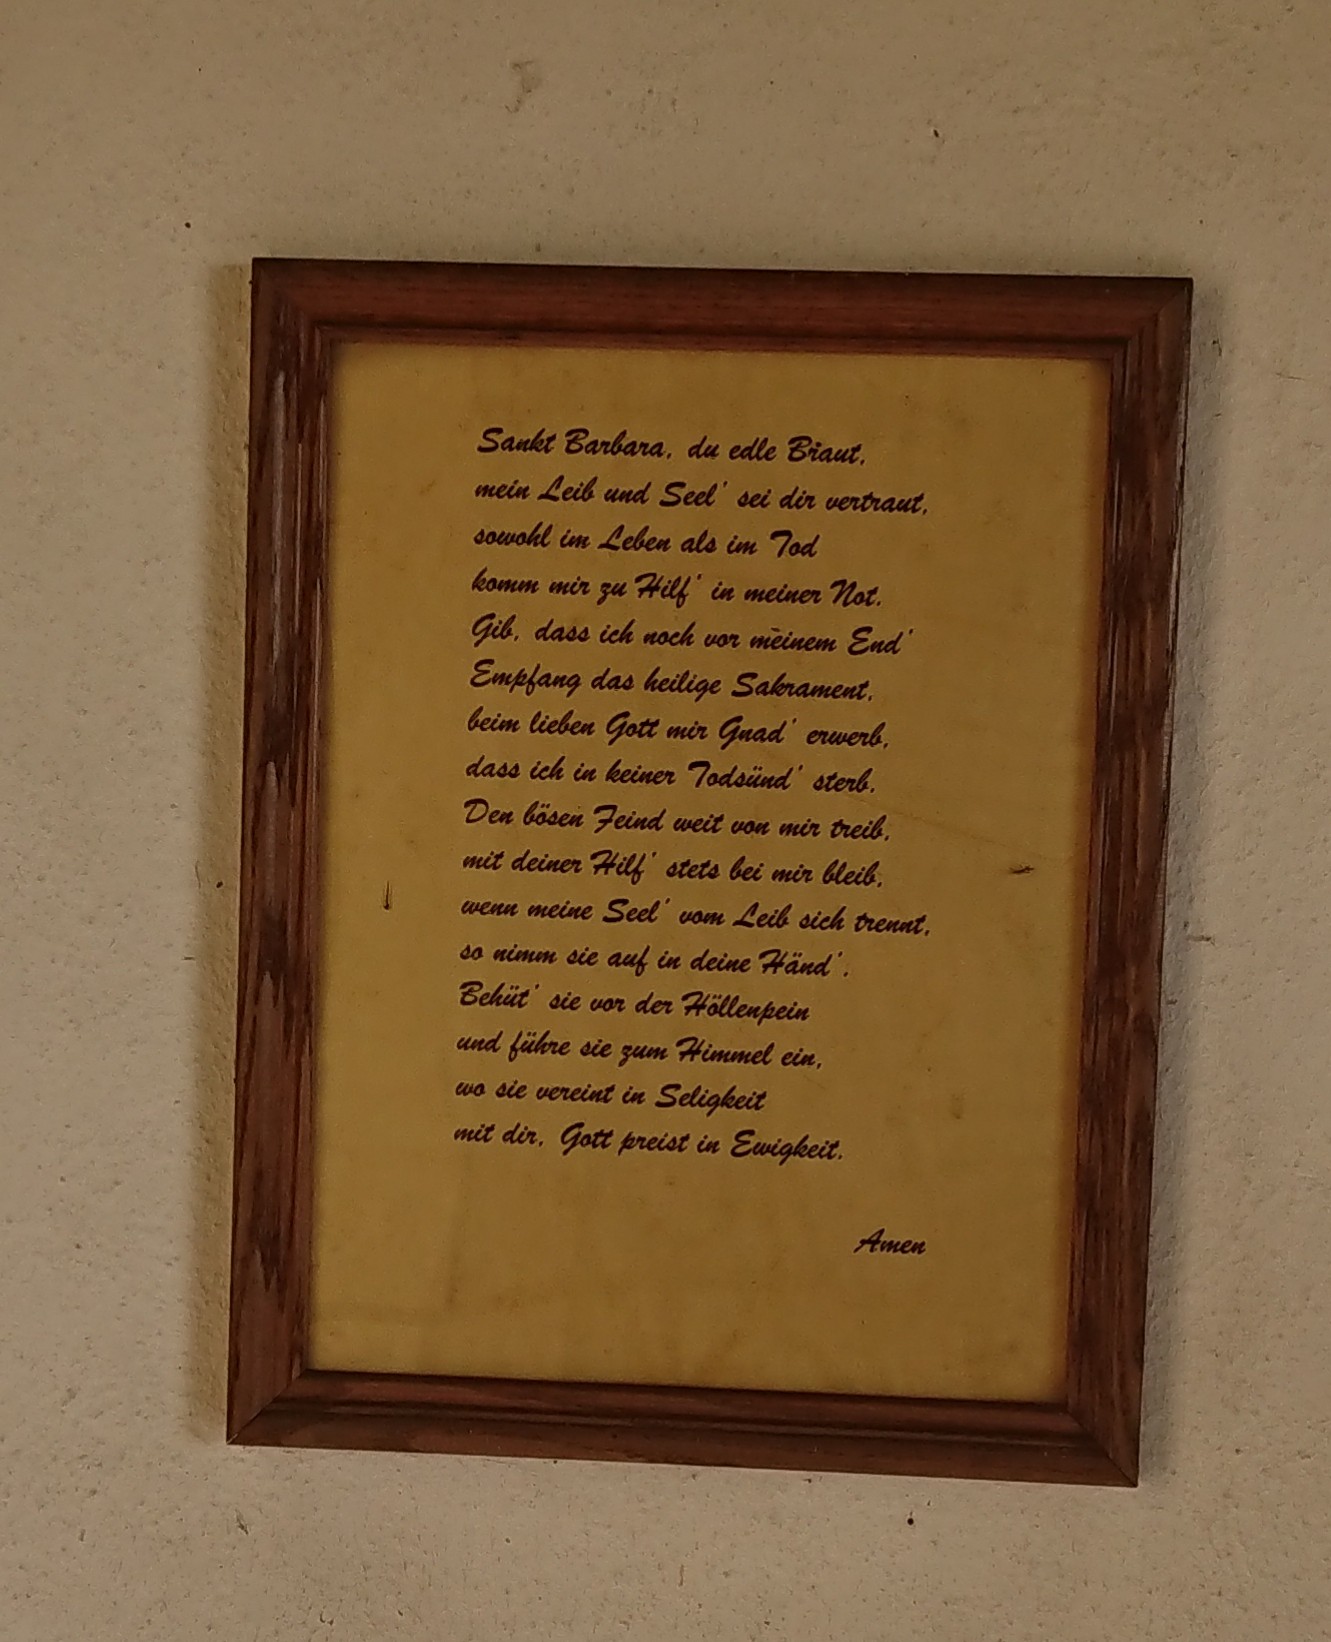 Sankt Barbara, du edle Braut,
mein Leib und Seel' sei dir vertraut,
sowohl im Leben als im Tod
komm mir zu Hilf' in meiner Not.
Gib, dass ich noch vor meinem End'
Empfang das heilige Sakrament,
beim lieben Gott mir Gnad' erwerb,
dass ich in keiner Todsünd' sterb.
Den bösen Feind weit von mir treib,
mit deiner Hilf' stets bei mir bleib,
wenn meine Seel' vom Leib sich trennt,
so nimm sie auf in deine Händ'.
Behüt' sie vor der Höllenpein
und führe sie zum Himmel ein,
wo sie vereint in Seligkeit
mit dir, Gott preist in Ewigkeit.
Amen